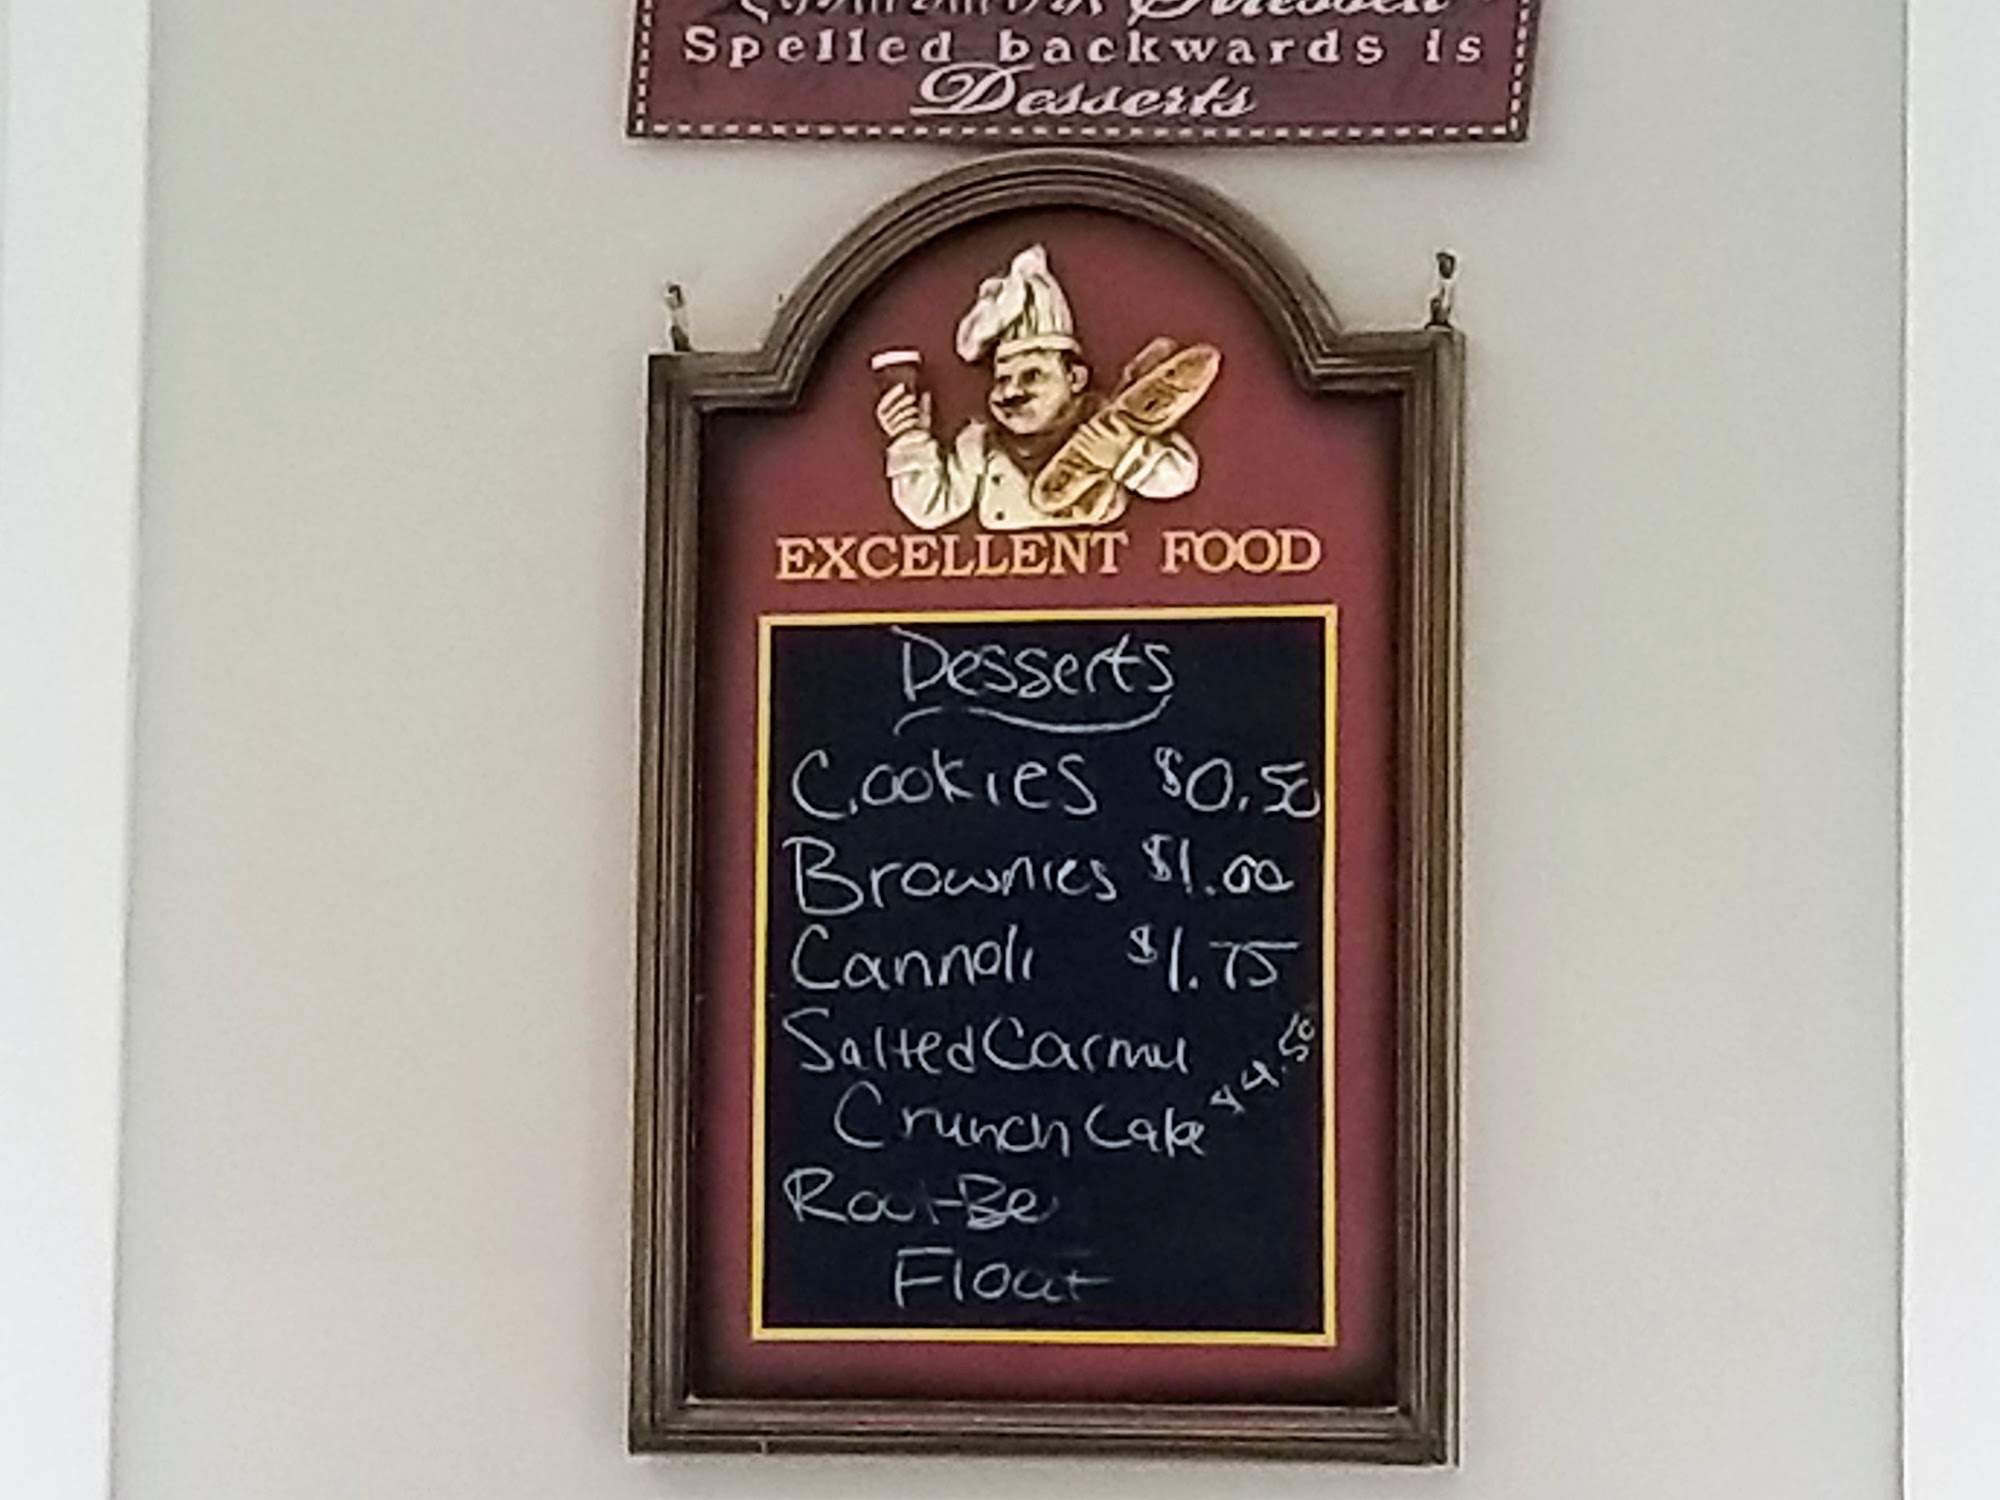 Stressed
Spelled backwards is
Desserts
EXCELLENT FOOD
Desserts
Cookies $0.50
Brownies $1.00
Cannoli $1.75
Salted Carmel
Crunch Cake $4.50
Root Be
Float